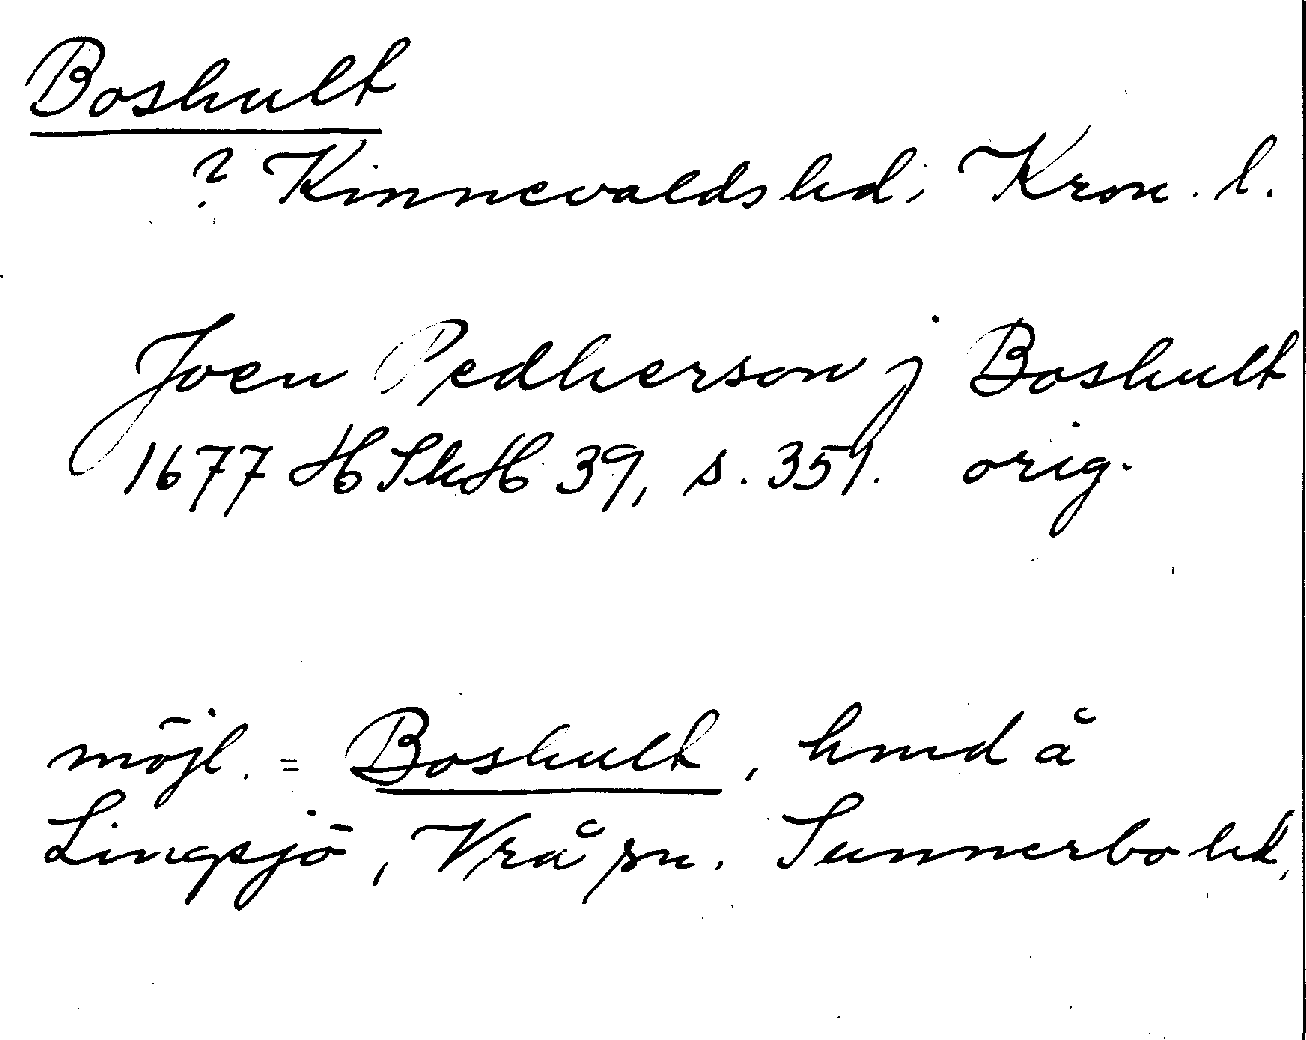 Boshult
? Kinnevalds hd, Kron. l.
Joen Pedherson j Boshult
1677 HSkH 39, s. 351. orig.
möjl. = Boshult, hmd å
Lingsjö, Vrå sn. Sunnerbo hd,